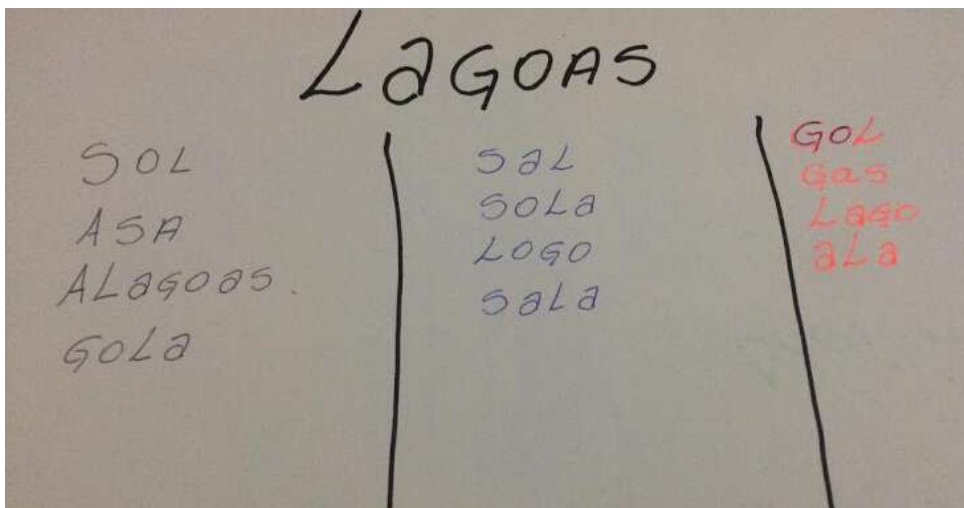 LaGOAS
SOL
ASA
ALagoas.
GOLa
SaL
SOLa
LOGO
SaLa
GOL
Gas
Lago
aLa